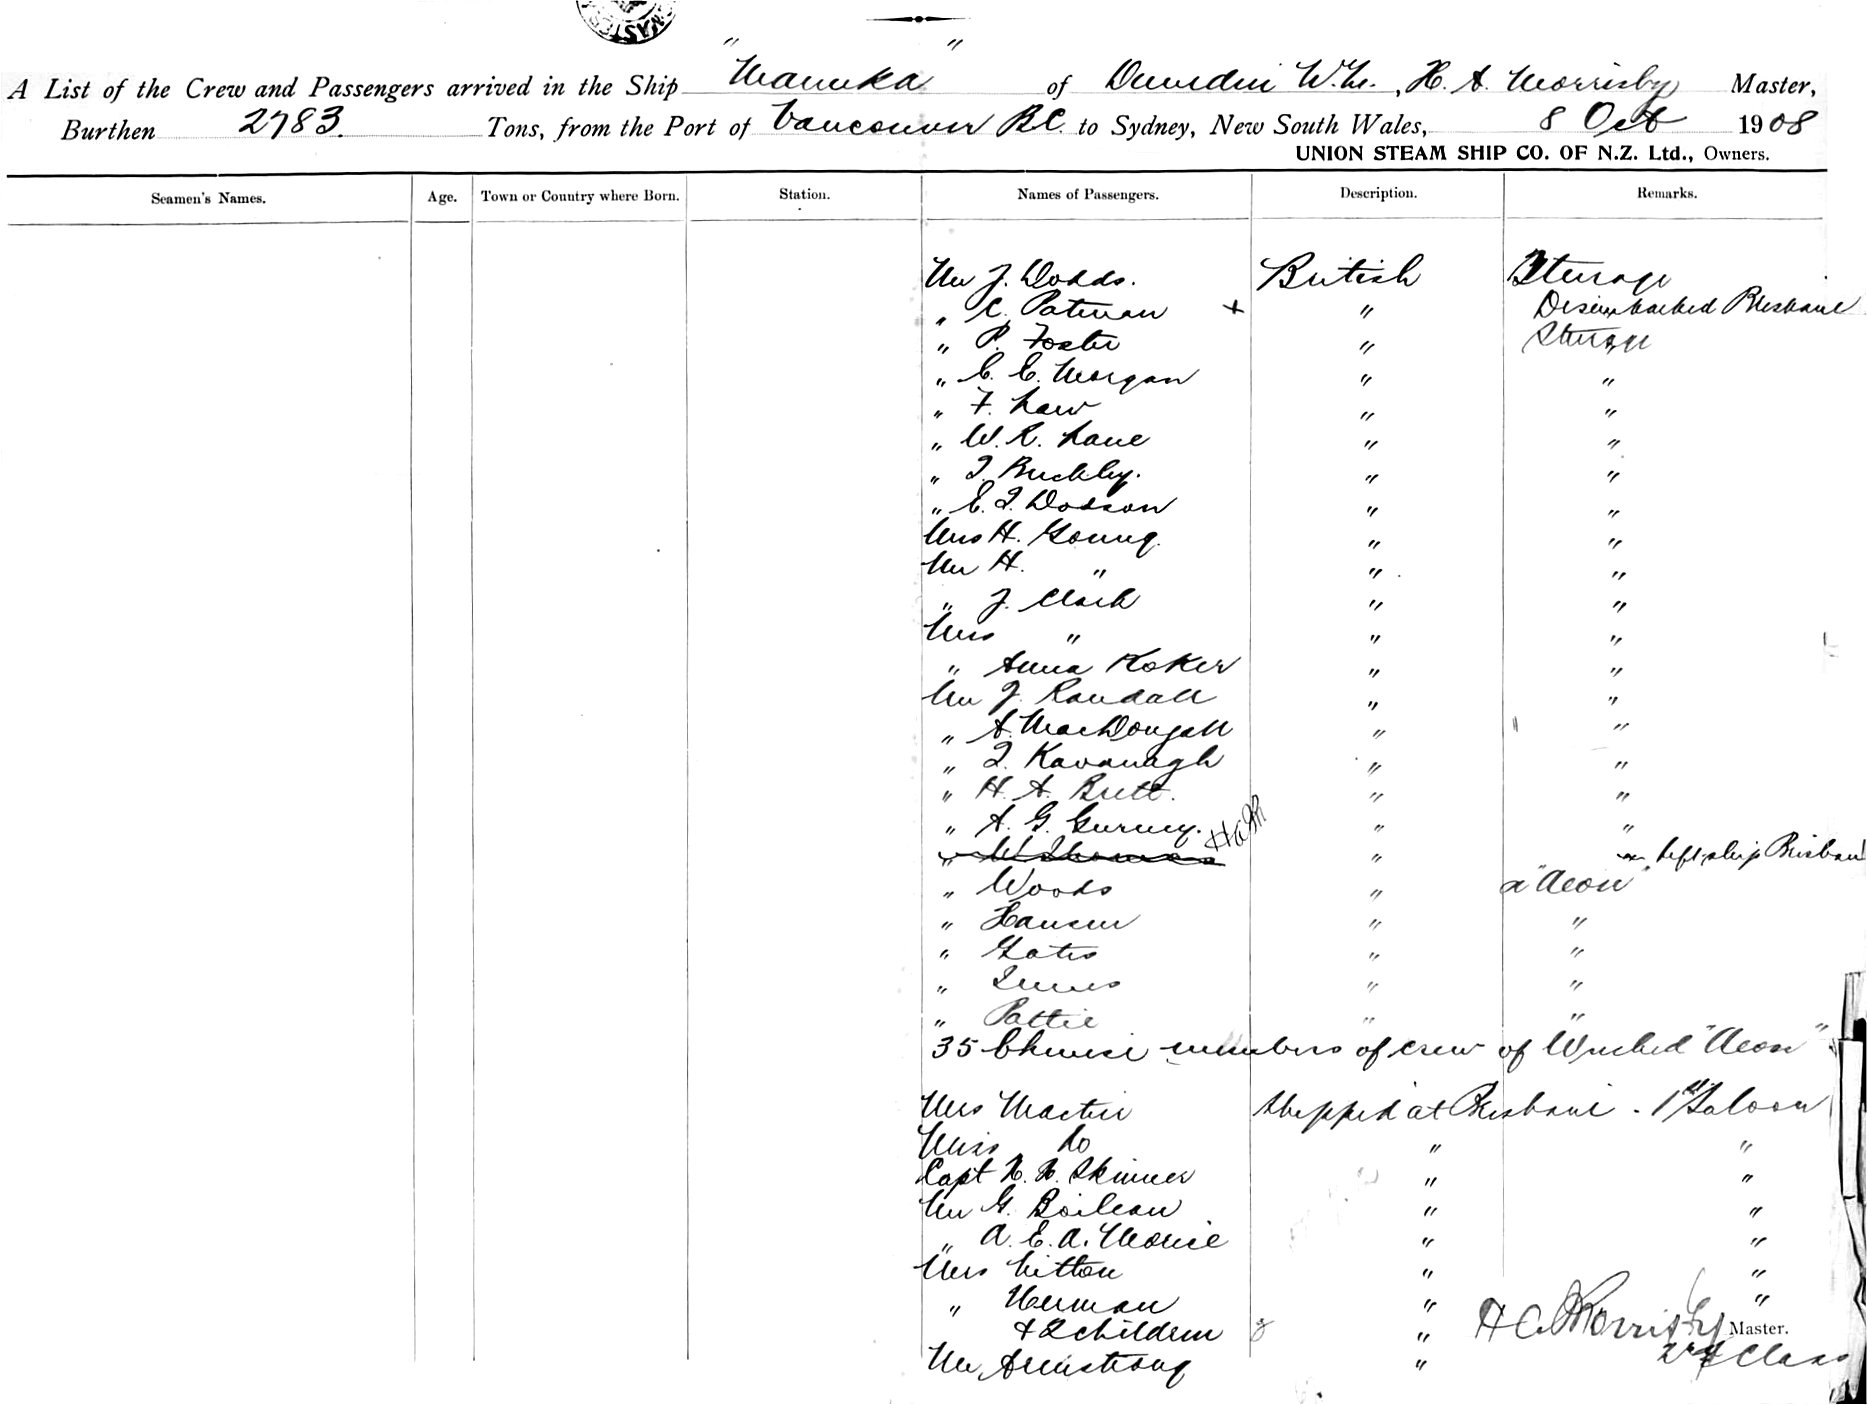 " "
A List of the Crew and Passengers arrived in the Ship Manuka of Dunedin N.Z., H. A. Morrisby Master,
Burthen 2783. Tons, from the Port of Vancouver B.C. to Sydney, New South Wales, 8 Oct 1908
UNION STEAM SHIP CO. OF N.Z. Ltd., Owners.
Seamen's Names. Age. Town or Country where Born. Station. Names of Passengers. Description. Remarks.
Mr J. Dodds. British Steerage
" C. Pateman + " Disembarked Brisbane
" P. Foster " Steerage
" C. E. Morgan " "
" F. Law " "
" W. R. Lane " "
" T. Buckley. " "
" E. T. Dodson " "
Mrs H. Young. " "
Mr H. " " "
" J. Clark " "
Mrs " " "
" Anna Koker " "
Mr J. Randall " "
" A. MacDougall " "
" T. Kavanagh " "
" H. A. Brett. " "
" A. G. Gurney. " "
" W Thomas HAM " " left ship Brisbane
" Woods " "Aeon"
" Hansen " "
" Yates " "
" " "
" Pattie " "
35 Chinese members of crew of Wrecked "Aeon"
Mrs Martin Shipped at Brisbane - 1st Saloon
Miss Do " "
Capt Skinner " "
Mr G. Boileau " "
" A. E. A. Morice " "
Mrs Litton " "
" Herman " "
+ 2 children " H A Morrisby Master.
Mr Armstrong " 2nd Class